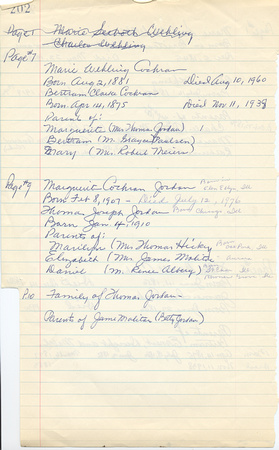 202
Page 1 Marie Seaboth Wehling
Charles Wehling
Page #7
Marie Wehling Cochran
Born Aug 2, 1881 Died Aug 10, 1960
Bertram Clarke Cochran
Born Apr 14, 1875 Died Nov 11, 1939
Parents of:
Marguerite (Mrs Thomas Jordan) 1
Bertram (M. Grayce Paulsen)
Mary (Mrs. Robert Meiers)
Page #9 Marguerite Cochran Jordan
Born Feb 8, 1907 - Died July 12, 1976
Thomas Joseph Jordan
Born Jan 4, 1910
Parents of:
Marilyn (Mrs Thomas Hickey
Elizabeth (Mrs James Molitor
Daniel (M. Renee Alberg)
P.10 Family of Thomas Jordan
Parents of James Molitor (Betty Jordan)